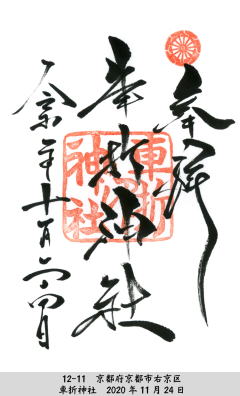 奉拝
車折神社
車折
神社
令和二年十一月二十四日
12-11 京都府京都市右京区
車折神社 2020年11月24日